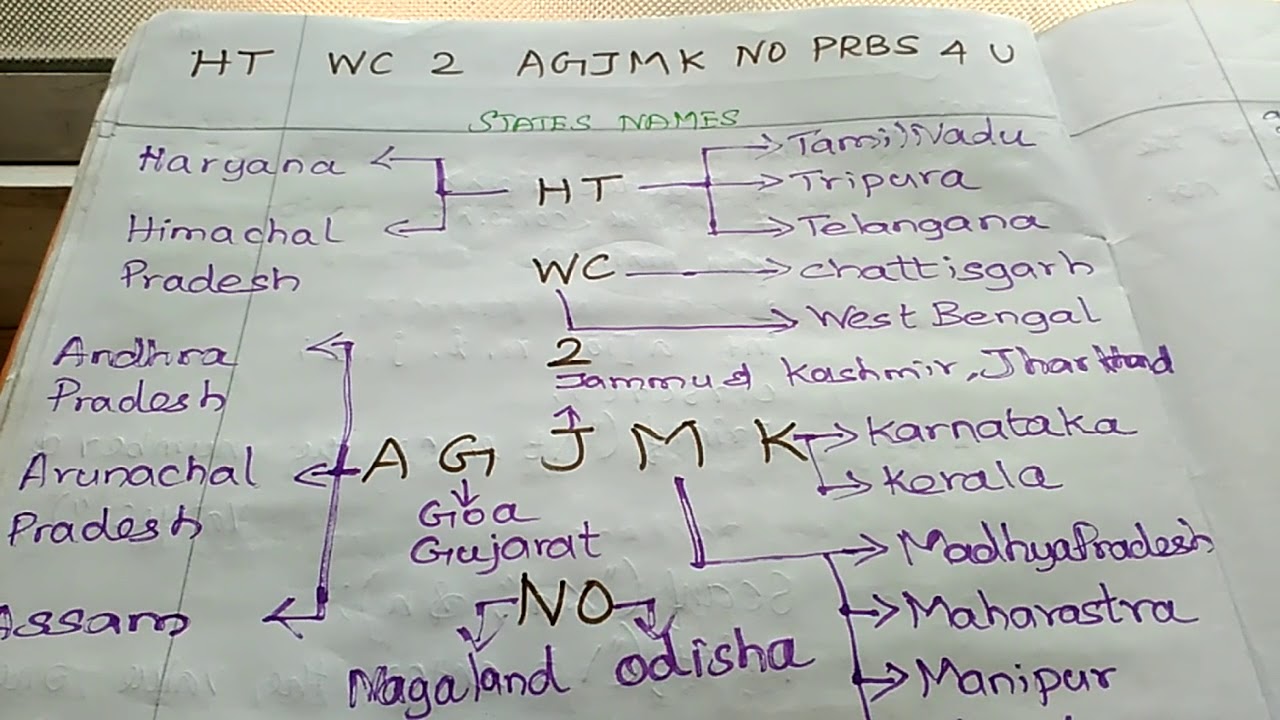 HT WC 2 AGJMK NO PRBS 4 U
STATES NAMES
Haryana
HT
Tamilnadu
Tripura
Himachal
Pradesh
Telangana
WC
chattisgarh
West Bengal
2
Andhra
Pradesh
Jammu & Kashmir, Jharkhand
A G J M K
Karnataka
Kerala
Arunachal
Pradesh
Goa
Gujarat
MadhyaPradesh
NO
Maharastra
Assam
Nagaland
odisha
Manipur